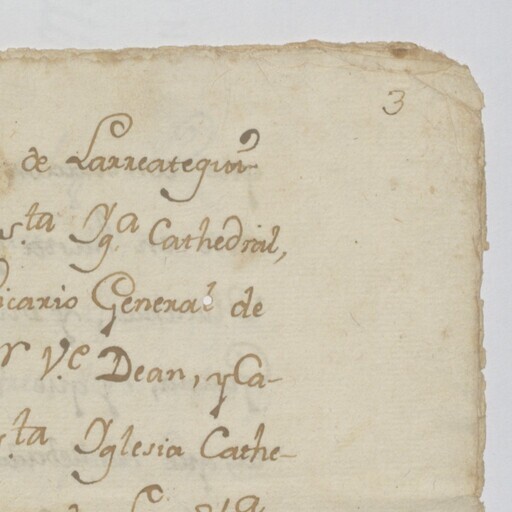 3
de Larreategui
s.ta Yg.a Cathedral,
icario General de
r V.e Dean, y Ca-
s.ta Yglesia Cathe-